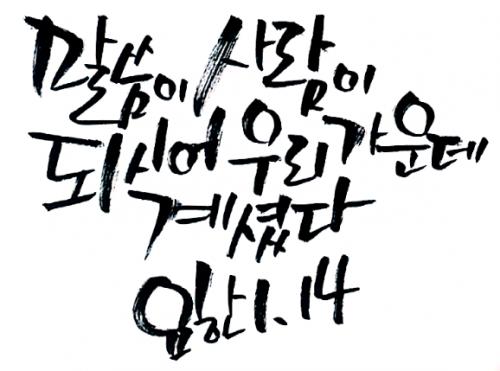 말씀이 사람이
되시어 우리 가운데
계셨다
요한 1.14